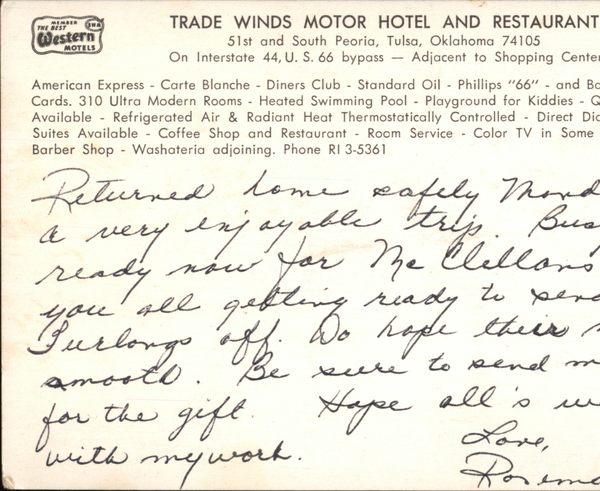 MEMBER
THE BEST
Western
MOTELS
TRADE WINDS MOTOR HOTEL AND RESTAURANT
51st and South Peoria, Tulsa, Oklahoma 74105
On Interstate 44, U. S. 66 bypass — Adjacent to Shopping Center
American Express - Carte Blanche - Diners Club - Standard Oil - Phillips "66" - and Ba
Cards. 310 Ultra Modern Rooms - Heated Swimming Pool - Playground for Kiddies - Q
Available - Refrigerated Air & Radiant Heat Thermostatically Controlled - Direct Dia
Suites Available - Coffee Shop and Restaurant - Room Service - Color TV in Some
Barber Shop - Washateria adjoining. Phone RI 3-5361
Returned home safely Mond
a very enjoyable trip. Bus
ready now for Mc Clellans
you all getting ready to send
Furlongs off. Do hope their
smooth. Be sure to send m
for the gift. Hope all's w
with my work. Love,
Rosema